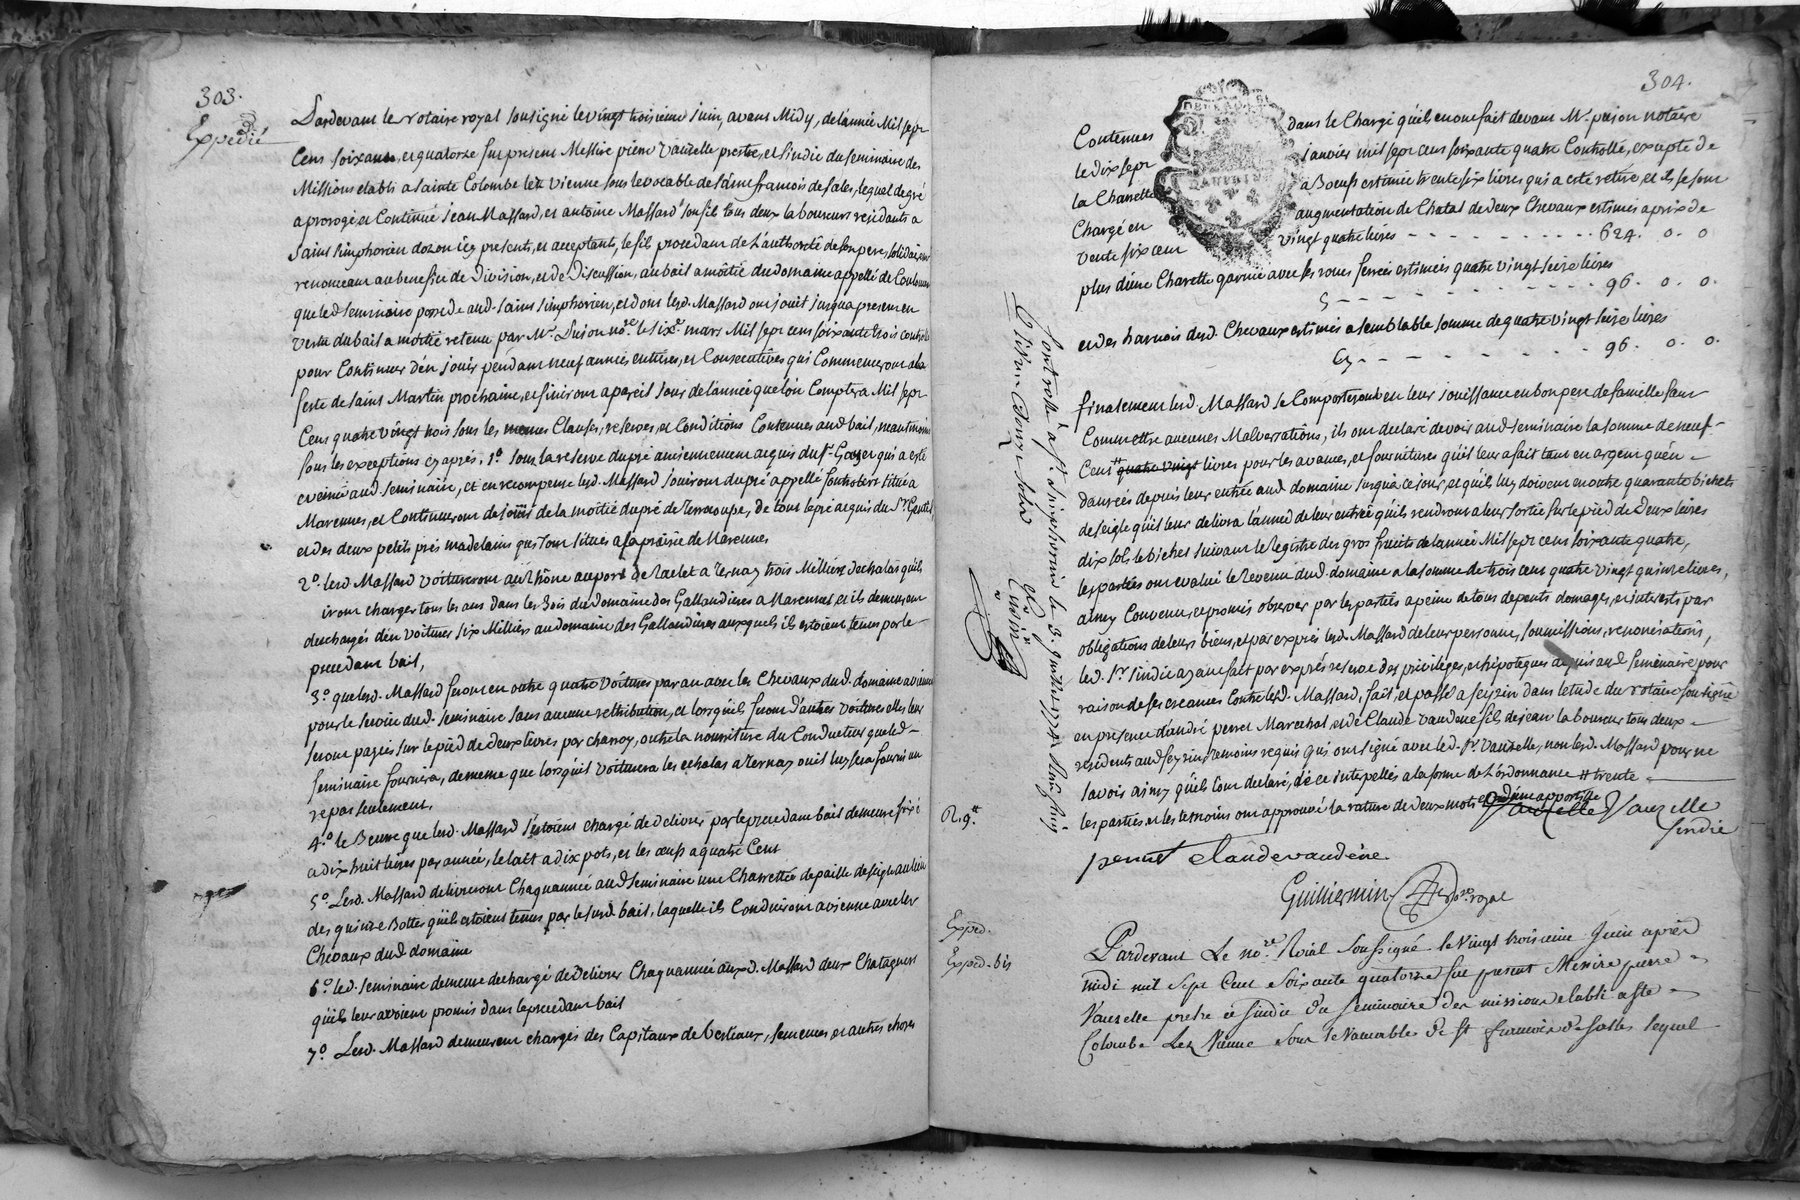 303.
Expedié
Pardevant le notaire royal soussigné le vingt troisieme Juin, avant Midy, de l'année Mil sept
Cens soixante, et quatorze fut present Messire pierre Vauzelle prestre, et sindic du seminaire des
Missions etabli a sainte Colombe lez vienne sous le vocable de saint francois de sales, lequel de gré
a prorogé et Continué Jean Massard, et antoine Massard son fil tous deux laboureurs residants a
saint simphorien dozon icy presents, et acceptants, le fil procedant de L'authorité de son pere, solidairement
renonceant au benefice de Division, et de Discussion, au bail a moitié du domaine appellé de
que led seminaire possede aud. saint simphorien, et dont lesd. Massard ont jouit jusqua present en
vertu du bail a moitié retenu par Me. Pujon nore le sixe mars Mil sept cens soixante trois controllé
pour Continuer d'en jouir pendant neuf années entieres, et Consecutives qui Commenceront a la
feste de saint Martin prochaine, et finiront a pareil jour de l'année que l'on Comptera Mil sept
Cens quatre vingt trois sous les memes Clauses, reserves, et Conditions Contenues aud bail, neantmoins
sous les exceptions cy apres. 1o sous la reserve du pré anciennement acquis du sr. qui a esté
aud seminaire, et en recompense lesd. Massard jouiront du pré appellé situé a
Marennes, et Continueront de jouir de la moitié du pré de, de tout le pré acquis du Sr. Gentet
et des deux petits prés madelains qui sont situés a la prairie de Marennes
2o. lesd Massard voitureront au Rhône au port de a Ternay trois Milliers dechalas qu'ils
iront charger tous les ans dans les bois du domaine des Gallandieres a Marennes et ils demeurent
dechargés d'en voiturer six Milliers au domaine des Gallandieres auxquels ils estoient tenus par le
precedant bail,
3o. que lesd. Massard feront en outre quatre voitures par an avec les Chevaux dud. domaine a vienne
pour le service dud. seminaire sans aucune rettribution, et lorsqu'ils feront d'autres voitures elles leur
seront payées sur le pied de deux livres par charroy, outre la nourriture du Conducteur que led
seminaire fournira, de meme que lorsqu'il voiturera les echalas a Ternay ou il luy sera fourni un
repas seulement.
4o. le Beurre que lesd. Massard s'estoient chargé de Delivrer par le precedant bail demeure fixé
a dix huit livres par année, le lait a dix pots, et les œufs a quatre Cent
5o Lesd. Massard delivreront Chaqu'année aud seminaire une Charrettée de paille de seigle au lieu
des quinze Bottes qu'ils estoient tenus par le susd. bail, laquelle ils Conduiront a vienne avec les
Chevaux dud. domaine
6o. led. seminaire demeure dechargé de Delivrer Chaqu'année auxd. Massard deux Chatagners
qu'ils leur avoient promis dans le precedant bail
7o. Lesd. Massard demeurent chargés des Capitaux de bestiaux, semences, et autres choses
304.
Contenues dans le Chargé qu'ils en ont fait devant Me. pujon notaire
le dix sept janvier mil sept cens soixante quatre Controllé, excepté de
la Charrette a Boeufs estimée trente six livres qui a esté retiré, et ils se sont
Chargé en augmentation de Chatal de deux Chevaux estimés a prix de
vente six cent vingt quatre livres - - - 624. o. o
plus d'une Charette garnie avec ses roues ferrées estimées quatre vingt seize livres
Cy - - - 96. o. o.
et des harnois desd. Chevaux estimés a semblable somme de quatre vingt seize livres
Cy - - - 96. o. o.
finalement lesd. Massard se Comporteront en leur jouissance en bon pere de famille sans
Commettre aucunes Malversations, ils ont declaré devoir aud seminaire la somme de neuf
Cent # quatre vingt livres pour les avances, et fournitures qu'il leur a fait tant en argent qu'en
danrées depuis leur entrée aud domaine jusqua ce jour, et qu'il luy doivent en outre quarante bichets
de seigle qu'il leur delivra l'année de leur entrée qu'ils rendront a leur sortie sur le pied de Deux livres
dix sols le bichet suivant le Registre des gros fruits de l'année Mil sept cens soixante quatre,
les parties ont evalué le Revenu dud. domaine a la somme de trois cens quatre vingt quinze livres,
ainsy Convenu, et promis observer par les parties a peine de tous depents domages, et interests par
obligations de leurs biens, et par exprés lesd. Massard de leur personne, soumissions, renonciations,
led. sr. sindic ayant fait par exprés reserve des privileges, et hipoteques acquis aud seminaire pour
raison de ses creances Contre lesd. Massard, fait, et passé a seyzin dans letude du notaire soussigné
en presence d'andré perret Marechal, et de Claude vaudene fils de jean laboureur tous deux
residents aud seyzin temoins requis qui ont signé avec led. sr Vauzelle, non lesd. Massard pour ne
savoir ainsy qu'ils l'ont declaré, de ce interpellés a la forme de L'ordonnance # trente
les parties et les temoins ont approuvé la rature de deux mots et d'une apportille
Vauzelle Vauzelle
sindic
perret Claude vaudéne
Guilliermin nore royal
Controllé a st. simphorien le 3. 1774
R. 9tt
Exped.
Exped. bis
Pardevant Le nore. Roial Soussigné le vingt troisieme Juin après
midi mil Sept Cent Soixante quatorze fut present Messire pierre
Vauzelle pretre et sindic du Seminaire des missions etabli a ste
Colombe Lez Vienne sous le Vocable de st francois de salles lequel